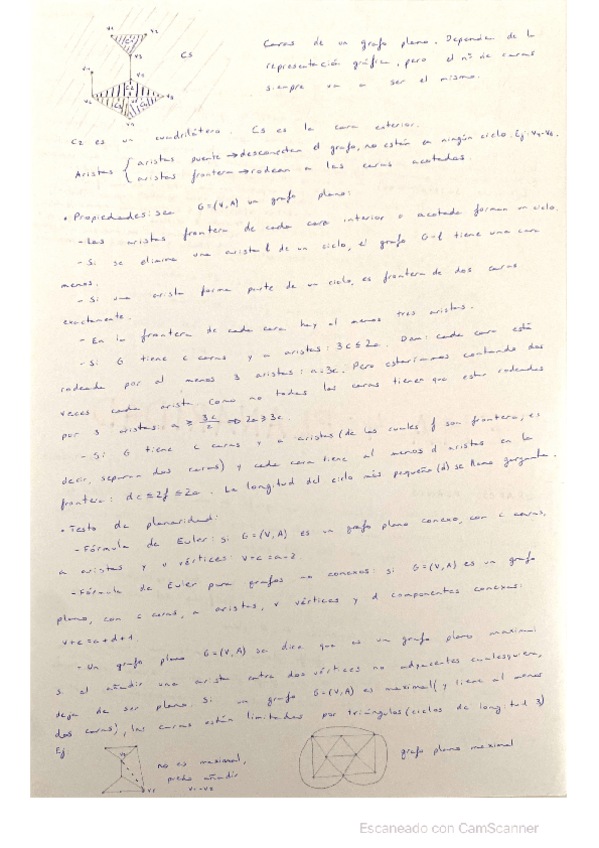 Caras de un grafo plano. Dependen de la
representación gráfica, pero el nº de caras
siempre va a ser el mismo.
V1 V2
C1
V3
C5
C2
C3 C4
C2 es un cuadrilátero. C5 es la cara exterior.
Aristas { aristas puente → desconectan el grafo, no están en ningún ciclo. Ej: V4-V6.
aristas frontera → rodean a las caras acotadas.
• Propiedades: sea G=(V,A) un grafo plano:
- Las aristas frontera de cada cara interior o acotada forman un ciclo.
- Si se elimina una arista l de un ciclo, el grafo G-l tiene una cara
menos.
- Si una arista forma parte de un ciclo, es frontera de dos caras
exactamente.
- En la frontera de cada cara hay al menos tres aristas.
- Si G tiene c caras y a aristas: 3c≤2a. Dem: cada cara está
rodeada por al menos 3 aristas: Pero estaríamos contando dos
veces cada arista. Como no todas las caras tienen que estar rodeadas
por 3 aristas: a ≥ 3c/2 ⇒ 2a≥3c.
- Si G tiene c caras y a aristas (de las cuales f son frontera, es
decir, separan dos caras) y cada cara tiene al menos d aristas en la
frontera: dc≤2f≤2a. La longitud del ciclo más pequeño (d) se llama garganta.
• Testo de planaridad:
- Fórmula de Euler: si G=(V,A) es un grafo plano conexo, con c caras,
a aristas y v vértices:
- Fórmula de Euler para grafos no conexos: si G=(V,A) es un grafo
plano, con c caras, a aristas, v vértices y d componentes conexas:
v+c=a+d+1
- Un grafo plano G=(V,A) se dice que es un grafo plano maximal
si al añadir una arista entre dos vértices no adyacentes cualesquiera,
deja de ser plano. Si un grafo G=(V,A) es maximal (y tiene al menos
dos caras), las caras están limitadas por triángulos (ciclos de longitud 3)
Ej:
no es maximal,
puedo añadir
grafo plano maximal
Escaneado con CamScanner